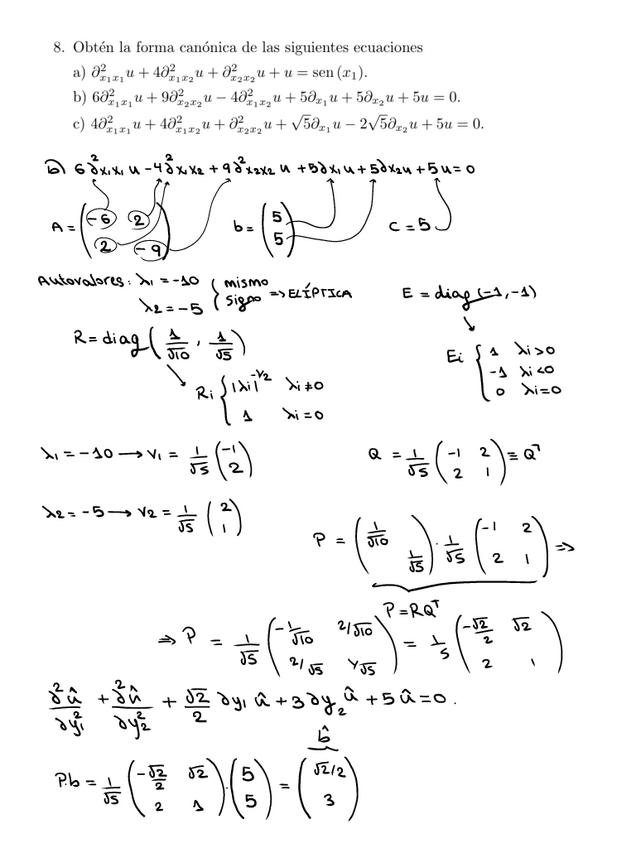 8. Obtén la forma canónica de las siguientes ecuaciones
a) ∂²ₓ₁ₓ₁u + 4∂²ₓ₁ₓ₂u + ∂²ₓ₂ₓ₂u + u = sen (x₁).
b) 6∂²ₓ₁ₓ₁u + 9∂²ₓ₂ₓ₂u − 4∂²ₓ₁ₓ₂u + 5∂ₓ₁u + 5∂ₓ₂u + 5u = 0.
c) 4∂²ₓ₁ₓ₁u + 4∂²ₓ₁ₓ₂u + ∂²ₓ₂ₓ₂u + √5∂ₓ₁u − 2√5∂ₓ₂u + 5u = 0.
b) 6∂²x₁x₁ u − 4∂²x₁x₂ + 9∂²x₂x₂ u + 5∂x₁u + 5∂x₂u + 5u = 0
A = (−6 2 ; 2 −9) b = (5 ; 5) c = 5
Autovalores: λ₁ = −10 { mismo
λ₂ = −5 { signo => ELÍPTICA E = diag(−1, −1)
R = diag(1/√10, 1/√5) Ei { 1 λi>0 ; −1 λi<0 ; 0 λi=0
Ri { |λi|^−1/2 λi≠0 ; 1 λi=0
λ₁ = −10 → v₁ = 1/√5 (−1 ; 2) Q = 1/√5 (−1 2 ; 2 1) ≡ Qᵀ
λ₂ = −5 → v₂ = 1/√5 (2 ; 1)
P = (1/√10 ; 1/√5) · 1/√5 (−1 2 ; 2 1) =>
P=RQᵀ
=> P = 1/√5 (−1/√10 2/√10 ; 2/√5 1/√5) = 1/5 (−√2/2 √2 ; 2 1)
∂²û/∂y₁² + ∂²û/∂y₂² + √2/2 ∂y₁ û + 3∂y₂ û + 5û = 0.
b̂
P·b = 1/√5 (−√2/2 √2 ; 2 1)·(5 ; 5) = (√2/2 ; 3)